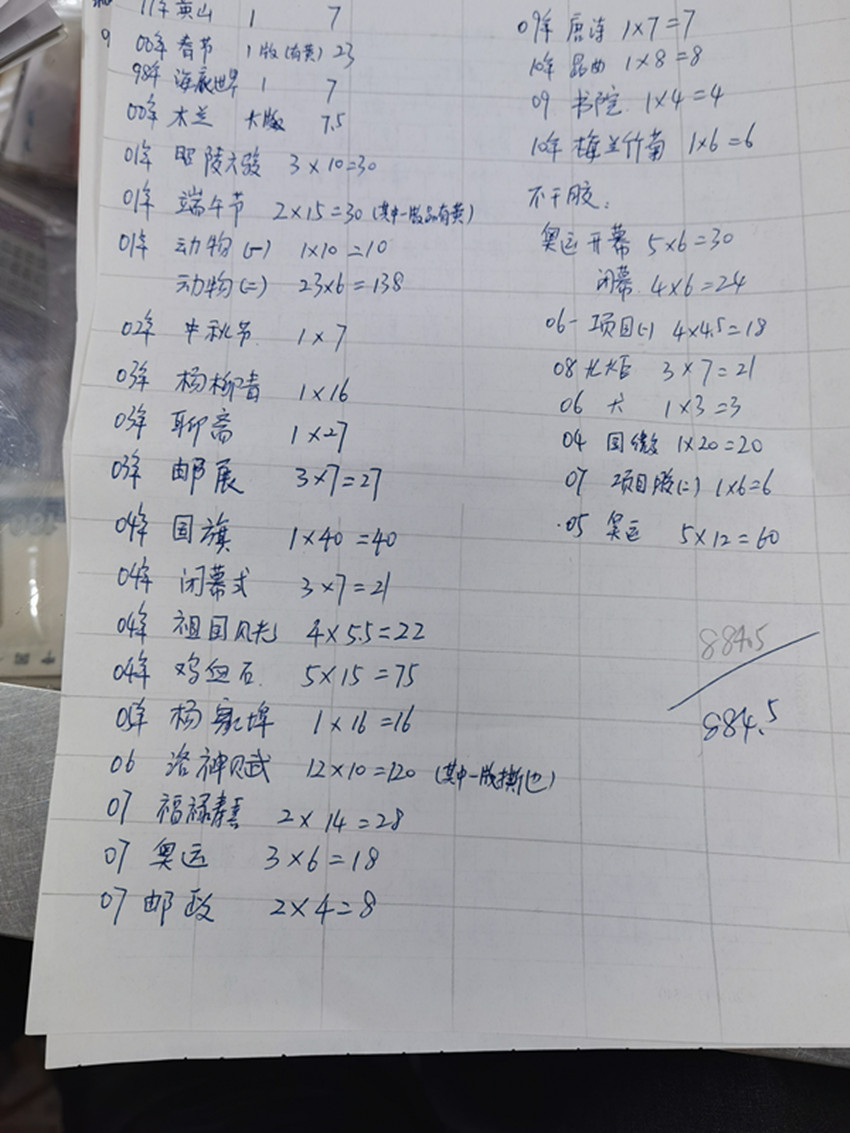 11年 英山 1 7
00年 春节 1版(有黄) 23
98年 海底世界 1 7
00年 木兰 大版 7.5
01年 昭陵六骏 3×10=30
01年 端午节 2×15=30 (其中一版品有黄)
01年 动物(一) 1×10=10
动物(二) 23×6=138
02年 中秋节 1×7
03年 杨柳青 1×16
03年 聊斋 1×27
03年 邮展 3×7=27
04年 国旗 1×40=40
04年 闭幕式 3×7=21
04年 祖国风光 4×5.5=22
04年 鸡血石 5×15=75
05年 杨家埠 1×16=16
06 洛神赋 12×10=120 (其中一版撕边)
07 福禄寿喜 2×14=28
07 奥运 3×6=18
07 邮政 2×4=8
09年 唐诗 1×7=7
10年 昆曲 1×8=8
09 书院 1×4=4
10年 梅兰竹菊 1×6=6
不干胶:
奥运开幕 5×6=30
闭幕 4×6=24
06一项目(一) 4×4.5=18
08 火炬 3×7=21
06 犬 1×3=3
04 国徽 1×20=20
07 项目版(二) 1×6=6
05 奥运 5×12=60
884.5
884.5